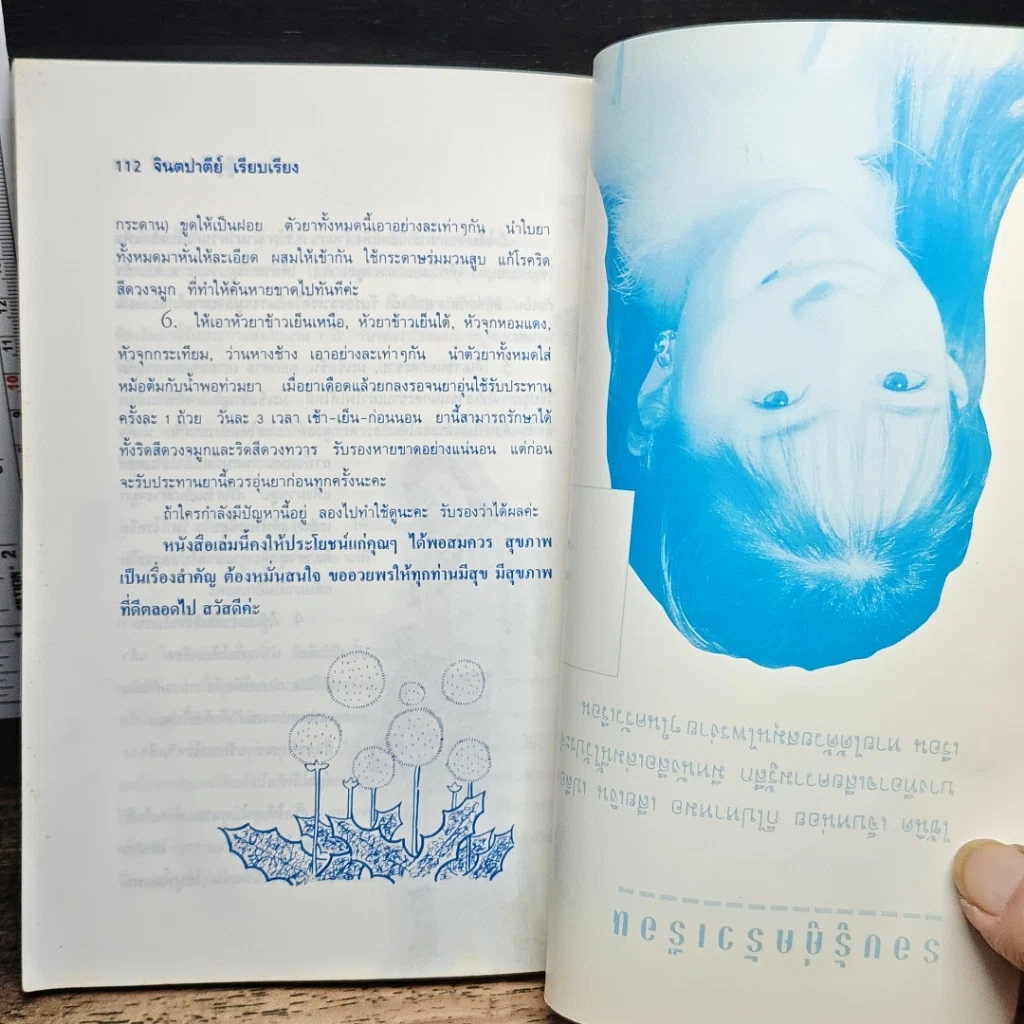 112 จินตปาตีย์ เรียบเรียง
กระดาน) ขูดให้เป็นฝอย ตัวยาทั้งหมดนี้เอาอย่างละเท่าๆกัน นำใบยา
ทั้งหมดมาหั่นให้ละเอียด ผสมให้เข้ากัน ใช้กระดาษร่มมวนสูบ แก้โรคริด
สีดวงจมูก ที่ทำให้คันหายขาดไปทันทีค่ะ
6. ให้เอาหัวยาข้าวเย็นเหนือ, หัวยาข้าวเย็นใต้, หัวจุกหอมแดง,
หัวจุกกระเทียม, ว่านหางช้าง เอาอย่างละเท่าๆกัน นำตัวยาทั้งหมดใส่
หม้อต้มกับน้ำพอท่วมยา เมื่อยาเดือดแล้วยกลงรอจนยาอุ่นใช้รับประทาน
ครั้งละ 1 ถ้วย วันละ 3 เวลา เช้า-เย็น-ก่อนนอน ยานี้สามารถรักษาได้
ทั้งริดสีดวงจมูกและริดสีดวงทวาร รับรองหายขาดอย่างแน่นอน แต่ก่อน
จะรับประทานยานี้ควรอุ่นยาก่อนทุกครั้งนะคะ
ถ้าใครกำลังมีปัญหานี้อยู่ ลองไปทำใช้ดูนะคะ รับรองว่าได้ผลค่ะ
หนังสือเล่มนี้คงให้ประโยชน์แก่คุณๆ ได้พอสมควร สุขภาพ
เป็นเรื่องสำคัญ ต้องหมั่นสนใจ ขออวยพรให้ทุกท่านมีสุข มีสุขภาพ
ที่ดีตลอดไป สวัสดีค่ะ
รอบรู้คู่ครัวเรือน
ไข้นิด เจ็บหน่อย ก็ไปหาหมอ เสียเงิน
บางทีอาจเสียความรู้สึก มีหนังสือเล่มนี้ไว้
เรือน หายได้ด้วยสมุนไพรง่ายๆในครัวเรือน